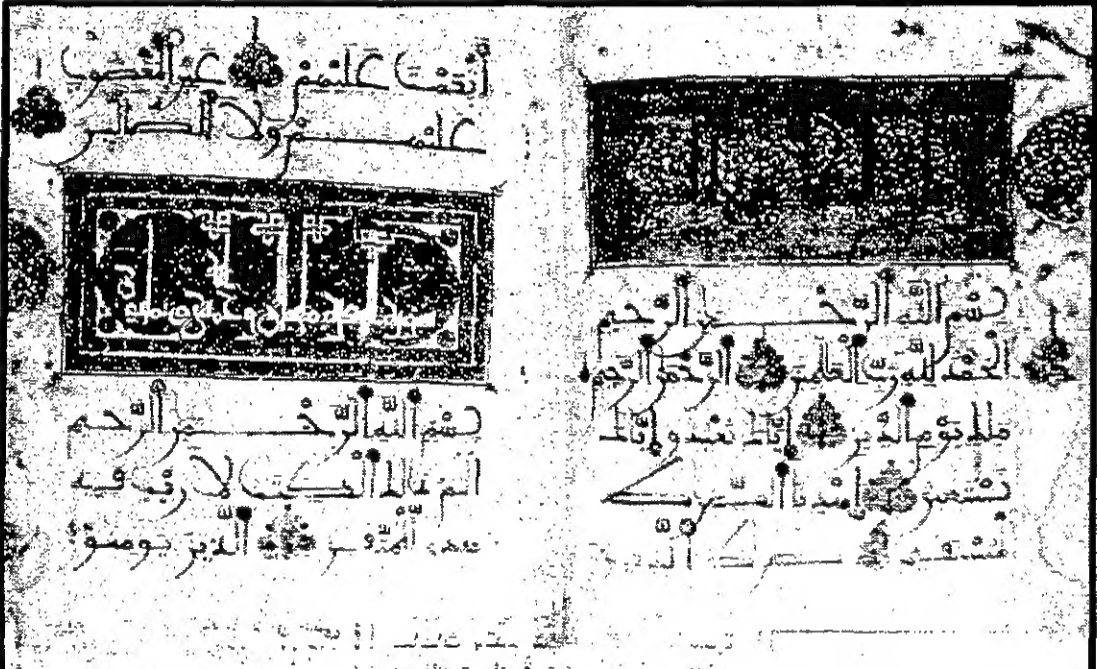 بسم الله الرحمن الرحيم
الحمد لله رب العلمين الرحمن الرحيم
ملك يوم الدين إياك نعبد وإياك
نستعين اهدنا الصرط
المستقيم صرط الذين
أنعمت عليهم غير المغضوب
عليهم ولا الضالين
بسم الله الرحمن الرحيم
الم ذلك الكتب لا ريب فيه
هدى للمتقين الذين يومنون